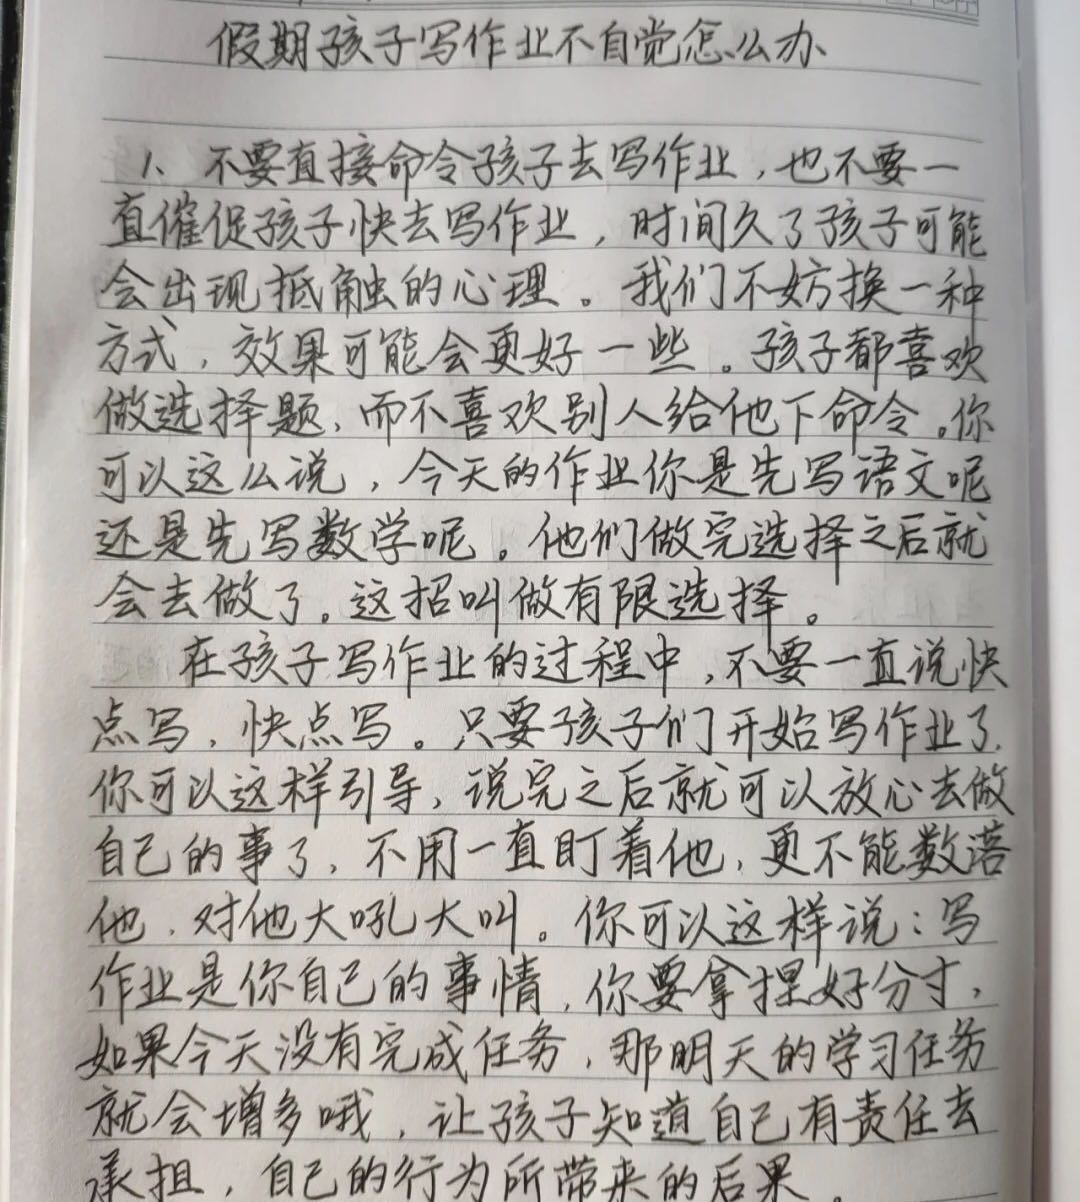 假期孩子写作业不自觉怎么办
1、不要直接命令孩子去写作业，也不要一
直催促孩子快去写作业，时间久了孩子可能
会出现抵触的心理。我们不妨换一种
方式，效果可能会更好一些。孩子都喜欢
做选择题，而不喜欢别人给他下命令。你
可以这么说，今天的作业你是先写语文呢
还是先写数学呢。他们做完选择之后就
会去做了。这招叫做有限选择。
在孩子写作业的过程中，不要一直说快
点写，快点写。只要孩子们开始写作业了，
你可以这样引导，说完之后就可以放心去做
自己的事了，不用一直盯着他，更不能数落
他，对他大吼大叫。你可以这样说：写
作业是你自己的事情，你要拿捏好分寸，
如果今天没有完成任务，那明天的学习任务
就会增多哦，让孩子知道自己有责任去
承担，自己的行为所带来的后果。